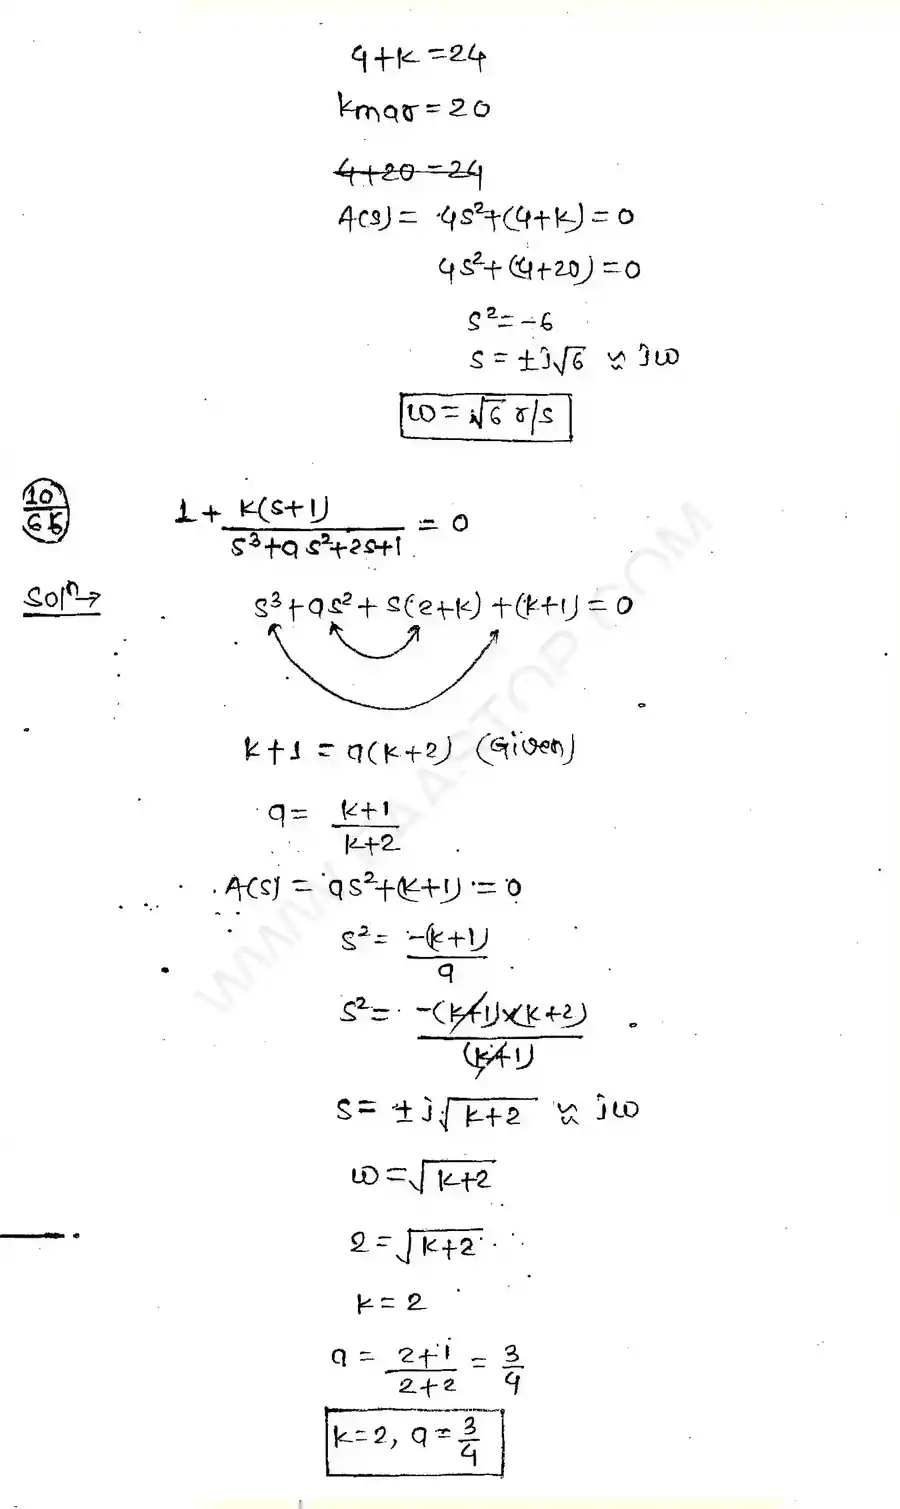 4+k=24
kmax=20
4+20=24
A(s) = 4s²+(4+k)=0
4s²+(4+20)=0
s²=-6
s = ±j√6 ≈ jω
ω=√6 r/s
10/65
1+ k(s+1)/(s³+as²+2s+1) = 0
Solⁿ→
s³+as²+s(2+k)+(k+1)=0
k+1 = a(k+2) (Given)
a = (k+1)/(k+2)
A(s) = as²+(k+1) = 0
s² = -(k+1)/a
s² = -(k+1)×(k+2)/(k+1)
s = ±j√(k+2) ≈ jω
ω=√(k+2)
2=√(k+2)
k=2
a = (2+1)/(2+2) = 3/4
k=2, a=3/4